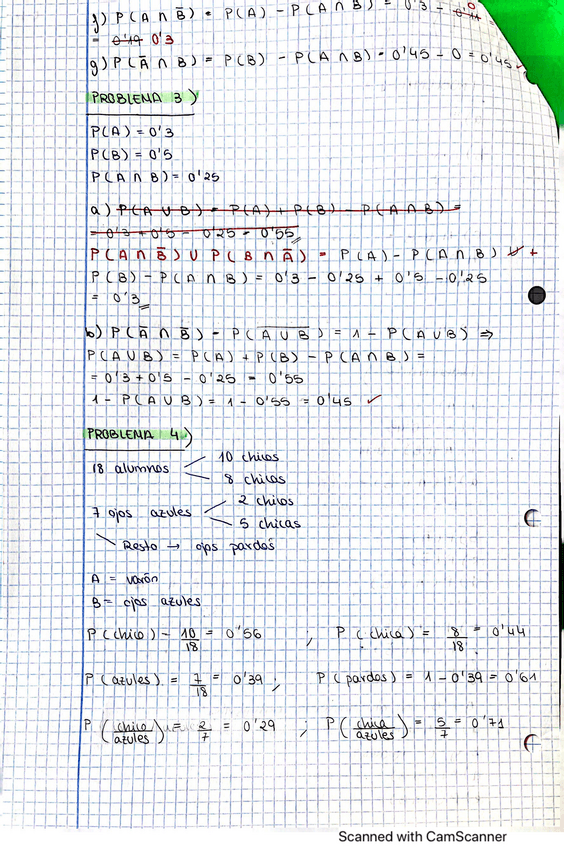 f) P(A ∩ B̄) = P(A) - P(A ∩ B) = 0'3 - 0
= 0'3
g) P(Ā ∩ B) = P(B) - P(A ∩ B) = 0'45 - 0 = 0'45 ✓
PROBLEMA 3)
P(A) = 0'3
P(B) = 0'5
P(A ∩ B) = 0'25
a) P(A ∪ B) = P(A) + P(B) - P(A ∩ B) =
= 0'3 + 0'5 - 0'25 = 0'55
P(A ∩ B̄) ∪ P(B ∩ Ā) = P(A) - P(A ∩ B) +
P(B) - P(A ∩ B) = 0'3 - 0'25 + 0'5 - 0'25
= 0'3
b) P(Ā ∩ B̄) = P(A̅ ̅∪̅ ̅B̅) = 1 - P(A ∪ B) ⇒
P(A ∪ B) = P(A) + P(B) - P(A ∩ B) =
= 0'3 + 0'5 - 0'25 = 0'55
1 - P(A ∪ B) = 1 - 0'55 = 0'45 ✓
PROBLEMA 4)
10 chicos
18 alumnos
8 chicas
2 chicos
7 ojos azules
5 chicas
Resto → ojos pardos
A = varón
B = ojos azules
P(chico) = 10/18 = 0'56 ; P(chica) = 8/18 = 0'44
P(azules) = 7/18 = 0'39 ; P(pardos) = 1 - 0'39 = 0'61
P(chico/azules) = 2/7 = 0'29 ; P(chica/azules) = 5/7 = 0'71
Scanned with CamScanner